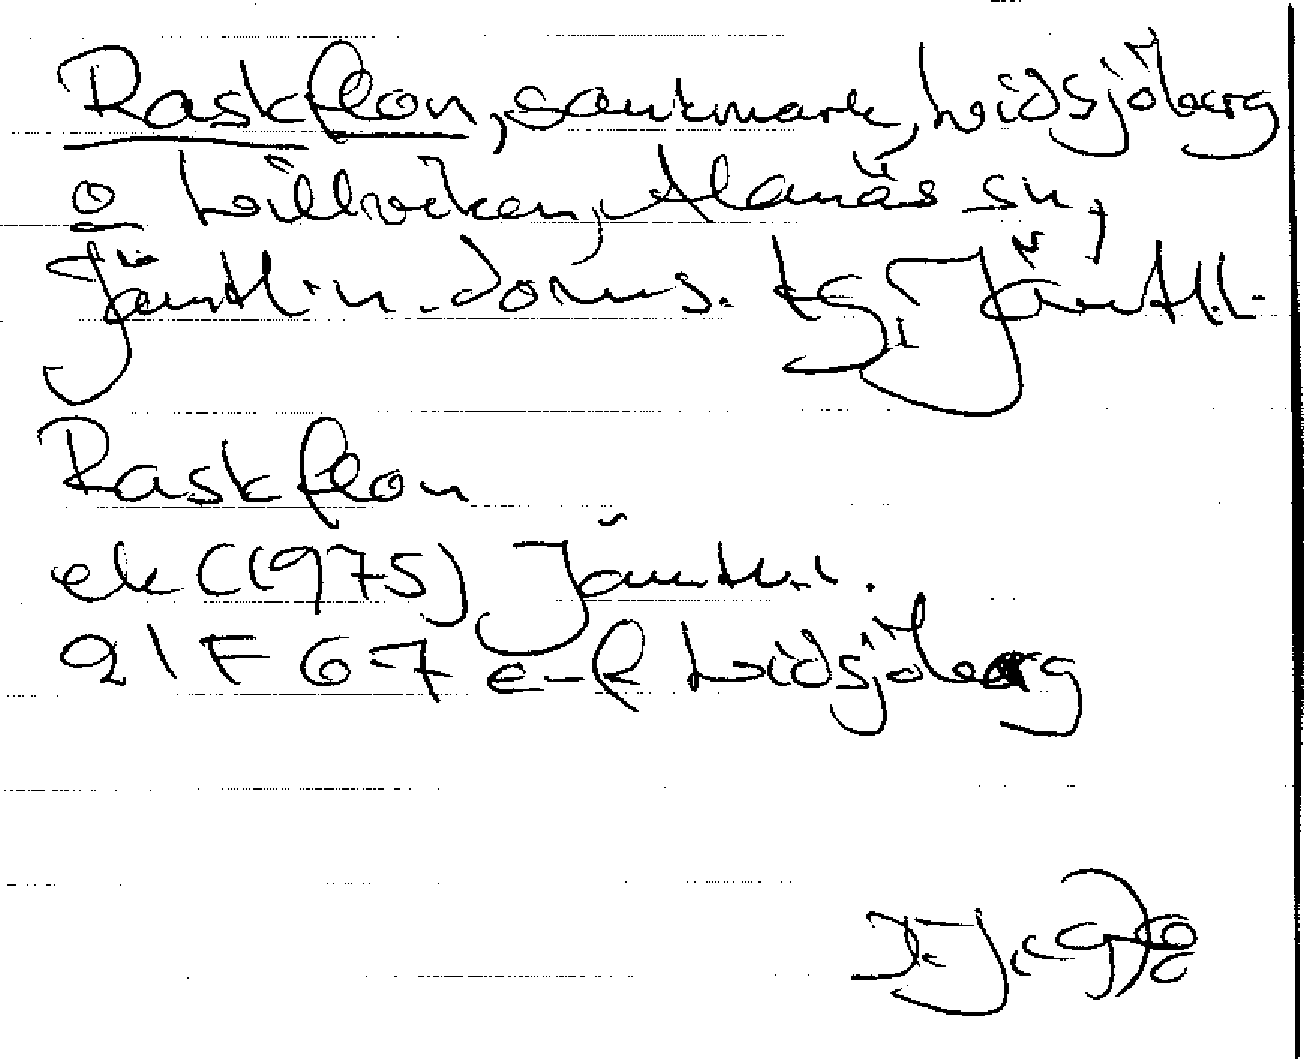 Raskflon, sankmark, Hvidsjöberg
o Hillviken, Alanäs sn,
Jämtl:n. doms. tg. Jämtl.l.
Raskflon
ek (1975) Jämtl.l.
21 F 67 e-f Hvidsjöberg